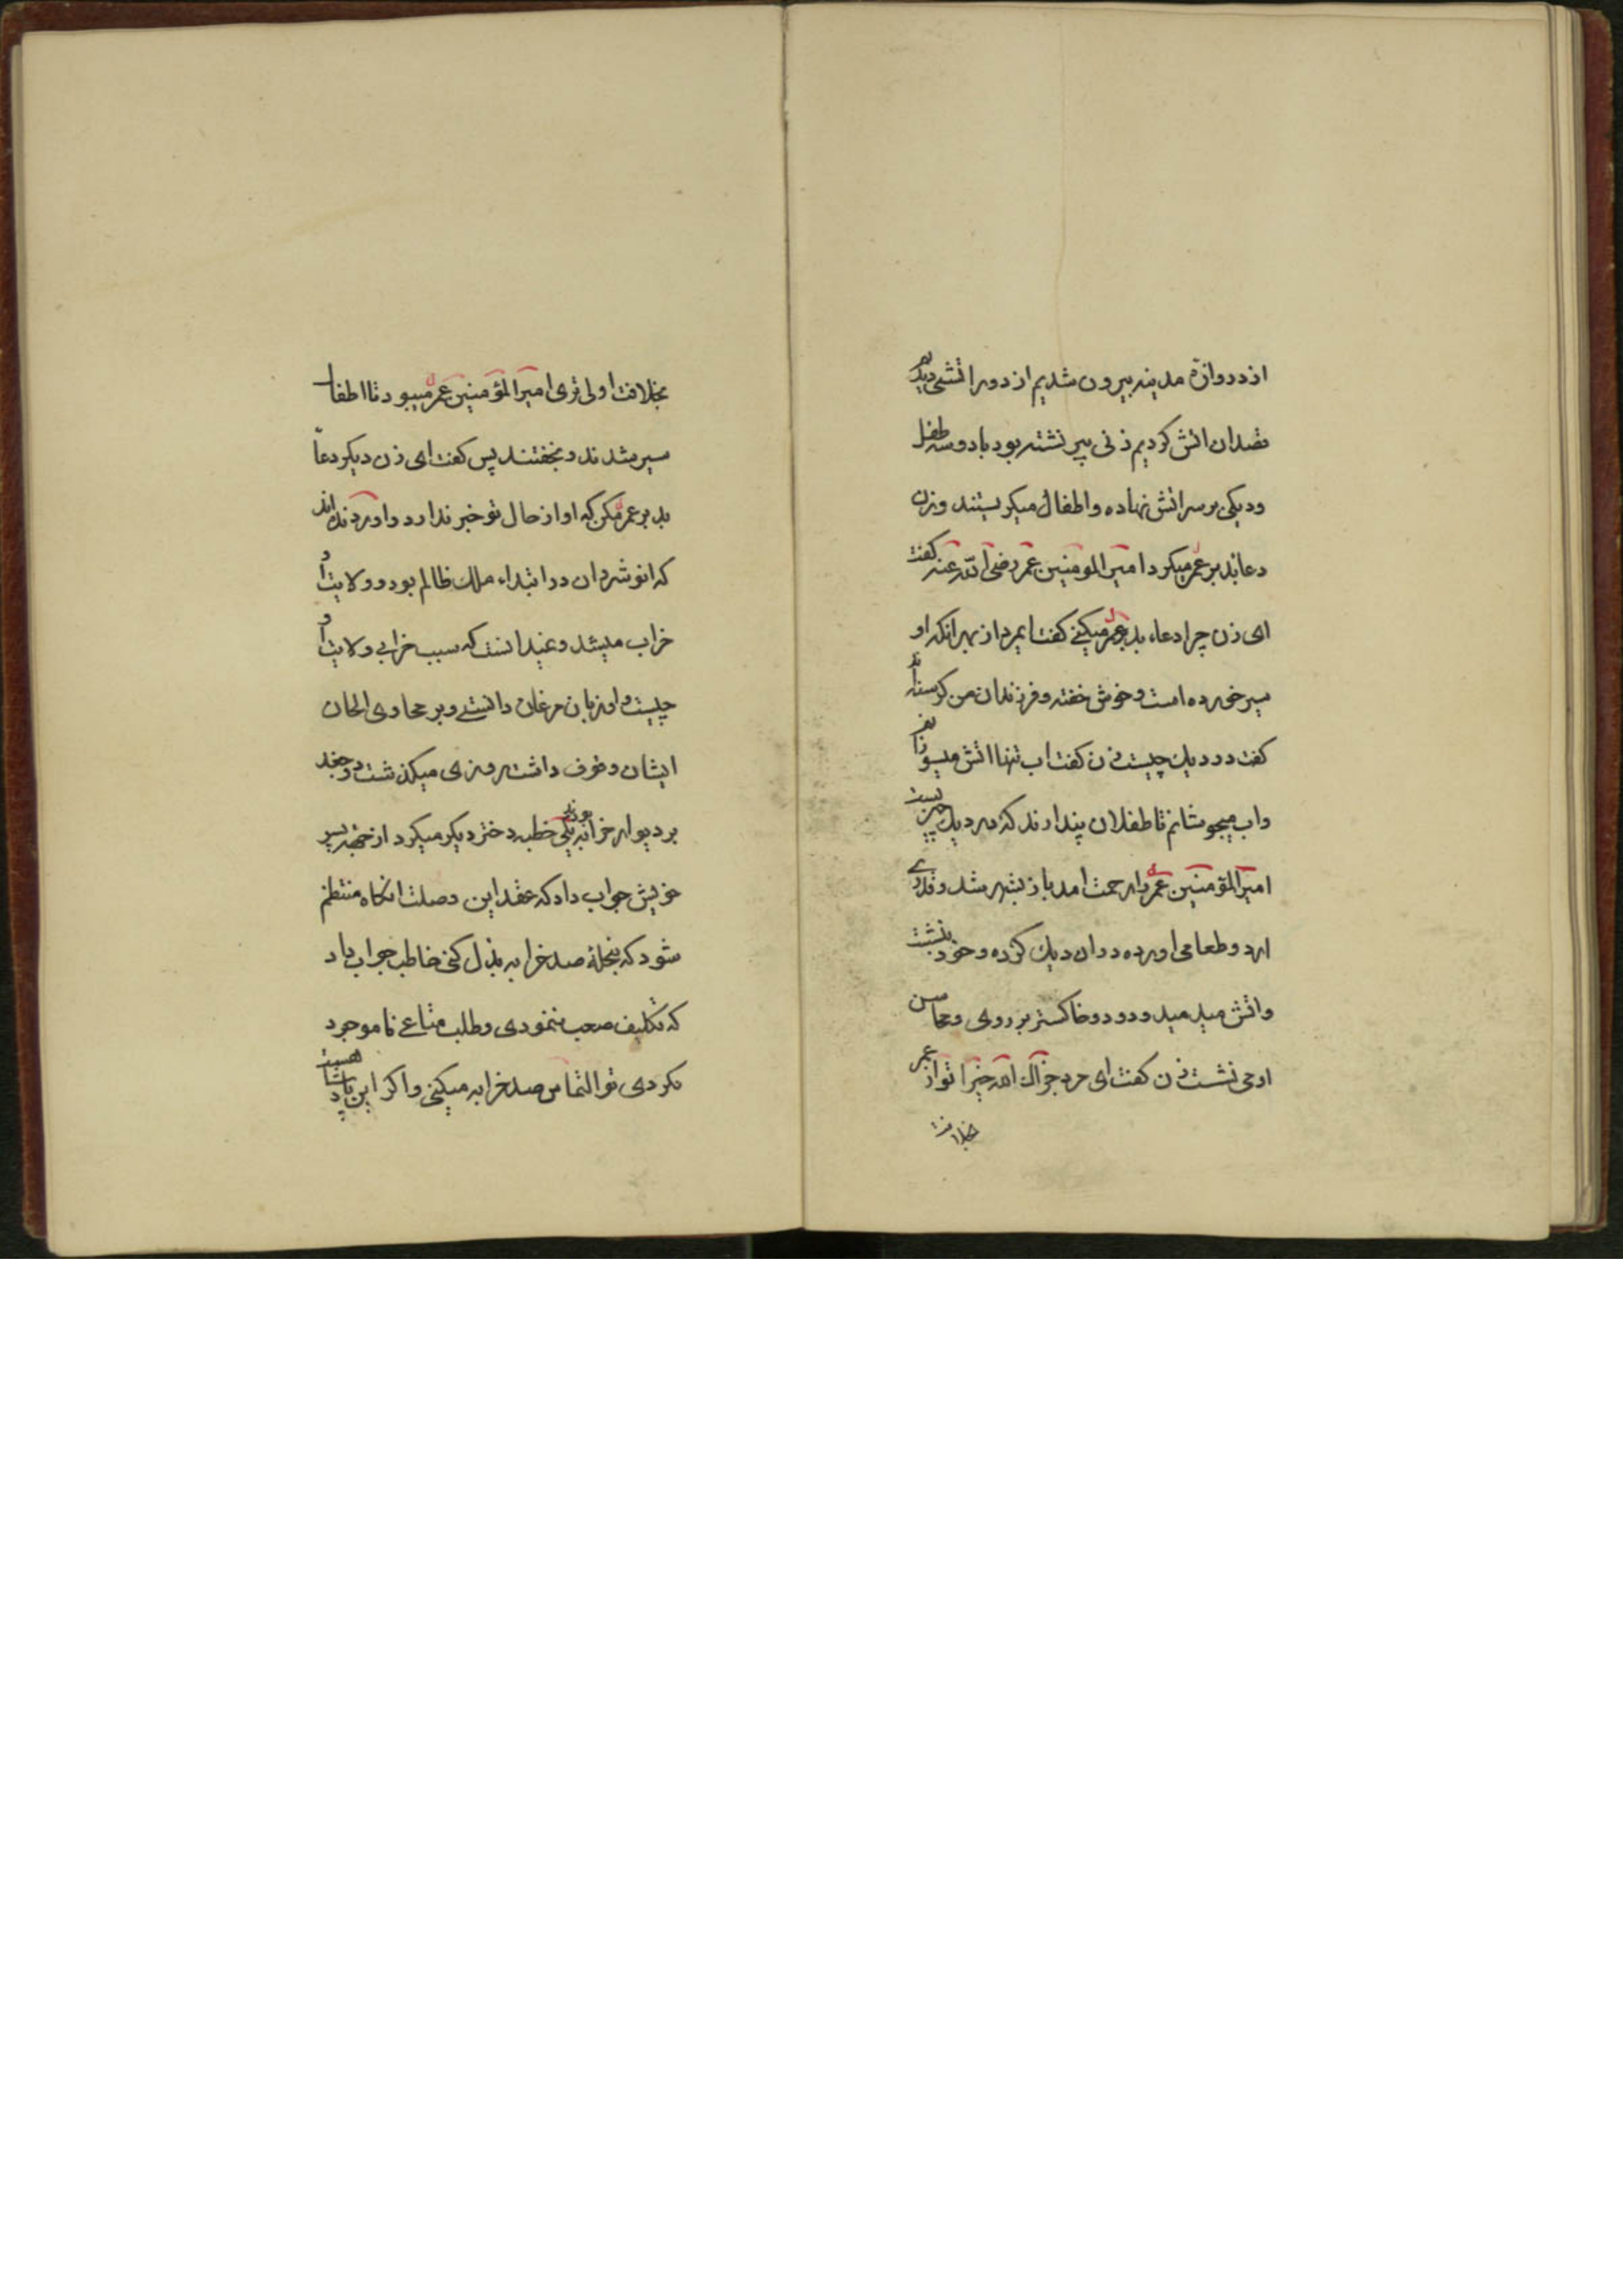 از دروازهٔ مدینه بیرون شدیم از دور اتشی دیدیم
قصد ان اتش کردیم زنی پیر نشسته بود با دو سه طفل
و دیکی بر سر اتش نهاده و اطفال میکریستند و زن
دعا بد بر عمر میکرد امیر المومنین عمر رضی الله عنه کفت
ای زن چرا دعاء بد بر عمر میکنی کفت ایمرد از بهر انکه او
سیر خورده است و خوش خفته و فرزندان من کرسنه اند
کفت در دیك چیست زن کفت اب تنها اتش میسوزانم
و اب میجوشانم تا طفلان پندارند که در دیك چیزیست
امیر المؤمنین عمر را رحمت امد باز بشهر شد و قدری
ارد و طعامی اورده در ان دیك کرده و خود بنشست
و اتش میدمید و دود و خاکستر بر روی و محاسن
او می نشست زن کفت ای مرد جزاك الله خیرا تو از عمر
بخلافت
بخلافت اولی تری امیر المؤمنین عمر میبود تا اطفال
سیر شدند و بخفتند پس کفت ای زن دیکر دعاء
بد بر عمر مکن که او از حال تو خبر ندارد و اورده اند
که انوشروان در ابتداء ملك ظالم بود و ولایت او
خراب میشد و نمیدانست که سبب خرابی ولایت او
چیست و او زبان مرغان دانستی و بر مجاوی الحان
ایشان وقوف داشت روزی میکذشت دو جغد
بر دیوار خرابه بودند یکی خطبه دختر دیکر میکرد از جهة پسر
خویش جواب داد که عقد این وصلت انکاه منتظم
شود که بنحلهٔ صد خرابه بذل کنی خاطب جواب داد
که تکلیف صعب ننمودی و طلب متاعی نا موجود
نکردی تو التماس صد خرابه میکنی و اکر این پادشا هست